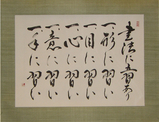 書法に五習あり
一形に習い
一目に習い
一心に習い
一意に習い
一手に習い